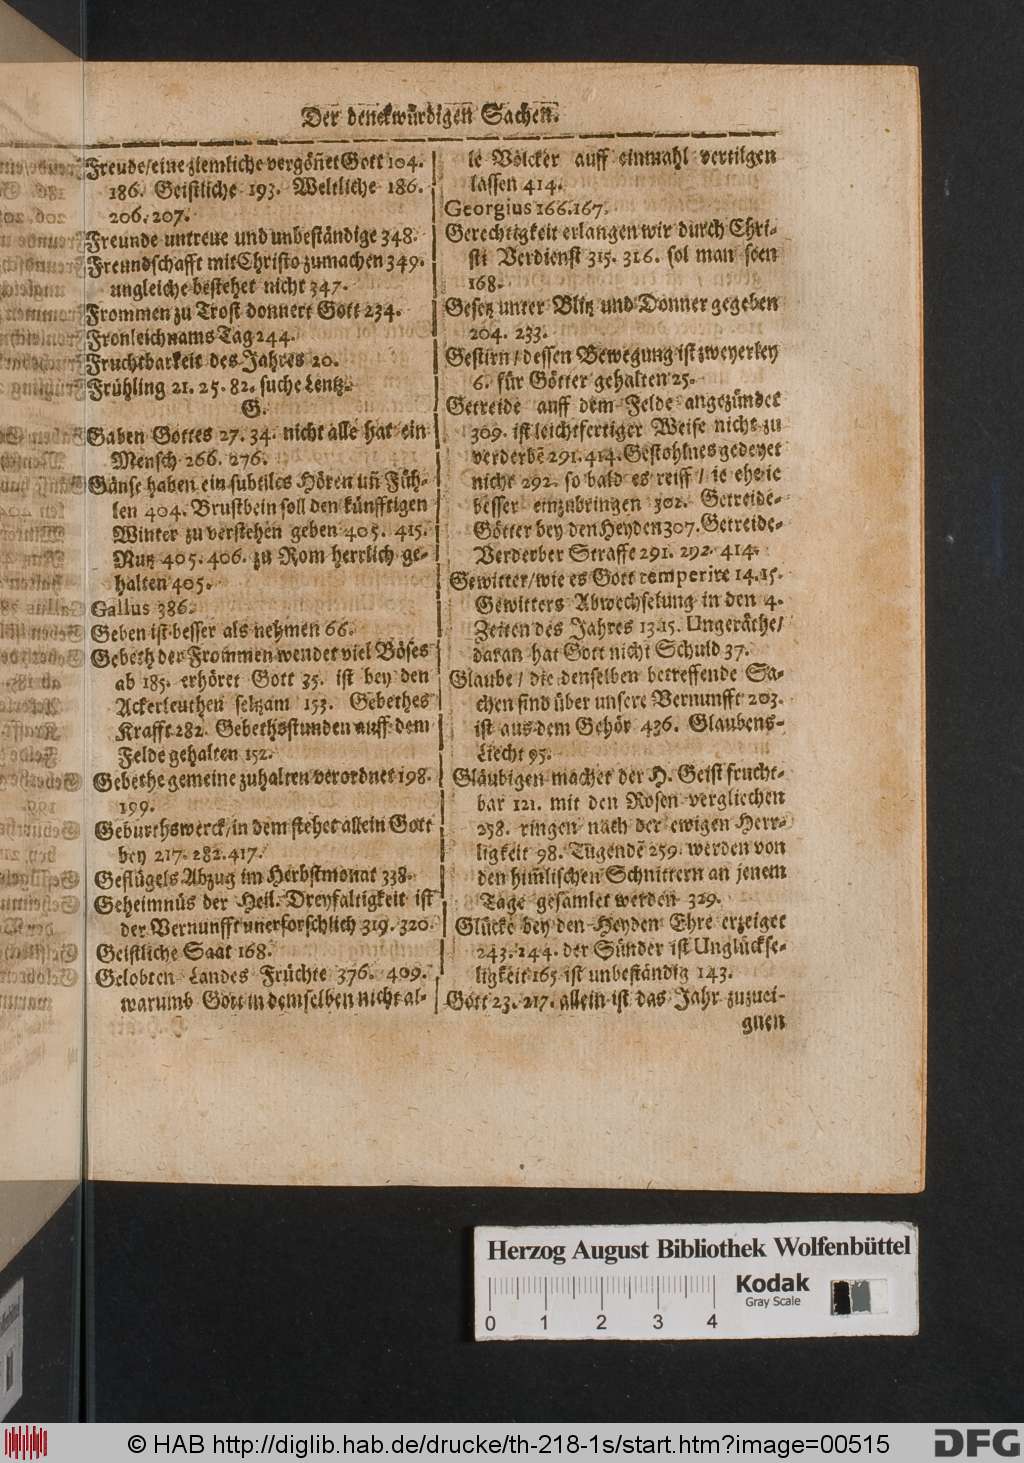 Der denckwürdigen Sachen.
Freude/eine ziemliche vergöñet Gott 104.
186. Geistliche 193. Weltliche 186.
206. 207.
Freunde untreue und unbeständige 348.
Freundschafft mit Christo zumachen 349.
ungleiche bestehet nicht 347.
Frommen zu Trost donnert Gott 234.
Fronleichnams Tag 244.
Fruchtbarkeit des Jahres 20.
Frühling 21. 25. 82. suche Lentz.
G.
Gaben Gottes 27. 34. nicht alle hat ein
Mensch 266. 276.
Gänse haben ein subtiles Hören uñ Füh-
len 404. Brustbein soll den künfftigen
Winter zu verstehen geben 405. 415.
Nutz 405. 406. zu Rom herrlich ge-
halten 405.
Gallus 386.
Geben ist besser als nehmen 66.
Gebeth der Frommen wendet viel Böses
ab 185. erhöret Gott 35. ist bey den
Ackerleuthen seltzam 153. Gebethes
Krafft 282. Gebethsstunden auff dem
Felde gehalten 152.
Gebethe gemeine zuhalten verordnet 198.
199.
Geburthswerck/in dem stehet allein Gott
bey 217. 282. 417.
Geflügels Abzug im Herbstmonat 338.
Geheimnüs der Heil. Dreyfaltigkeit ist
der Vernunfft unerforschlich 319. 320.
Geistliche Saat 168.
Gelobten Landes Früchte 376. 409.
warumb Gott in demselben nicht al-
le Völcker auff einmahl vertilgen
lassen 414.
Georgius 166. 167.
Gerechtigkeit erlangen wir durch Chri-
sti Verdienst 315. 316. sol man seen
168.
Gesetz unter Blitz und Donner gegeben
204. 233.
Gestirn/dessen Bewegung ist zweyerley
6. für Götter gehalten 25.
Getreide auff dem Felde angezündet
309. ist leichtfertiger Weise nicht zu
verderbē 291. 414. Gestohlnes gedeyet
nicht 292. so bald es reiff/ie ehe ie
besser einzubringen 302. Getreide-
Götter bey den Heyden 307. Getreide-
Verderber Straffe 291. 292. 414.
Gewitter/wie es Gott temperire 14. 15.
Gewitters Abwechselung in den 4.
Zeiten des Jahres 13. 15. Ungeräthe/
daran hat Gott nicht Schuld 37.
Glaube/die denselben betreffende Sa-
chen sind über unsere Vernunfft 203.
ist aus dem Gehör 436. Glaubens-
Liecht 95.
Gläubigen machet der H. Geist frucht-
bar 121. mit den Rosen vergliechen
258. ringen nach der ewigen Herr-
ligkeit 98. Tugendē 259. werden von
den him̄lischen Schnittern an jenem
Tage gesamlet werden 329.
Glücke bey den Heyden Ehre erzeiget
243. 244. der Sünder ist Unglückse-
ligkeit 165 ist unbeständig 143.
Gott 23. 217. allein ist das Jahr zuzuei-
gnen
Herzog August Bibliothek Wolfenbüttel
Kodak
Gray Scale
0 1 2 3 4
© HAB http://diglib.hab.de/drucke/th-218-1s/start.htm?image=00515
DFG